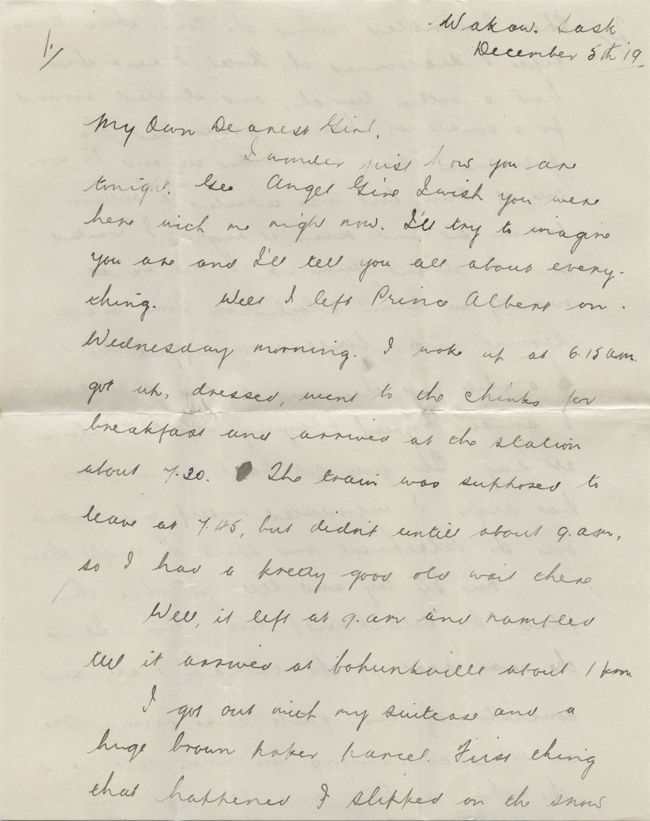 1./
Wakaw. Sask
December 5th 19
My Own Dearest Girl,
I wonder just how you are
tonight. Gee Angel Girl I wish you were
here with me right now. I'll try to imagine
you are and I'll tell you all about every-
thing. Well I left Prince Albert on
Wednesday morning. I woke up at 6.15 am.
got up, dressed, went to the chinks for
breakfast and arrived at the station
about 7.20. The train was supposed to
leave at 7.45, but didn't untill about 9. am,
so I had a pretty good old wait there
Well, it left at 9. am and rambled
till it arrived at bohunkville about 1 pm
I got out with my suitcase and a
huge brown paper parcel. First thing
that happened I slipped on the snow